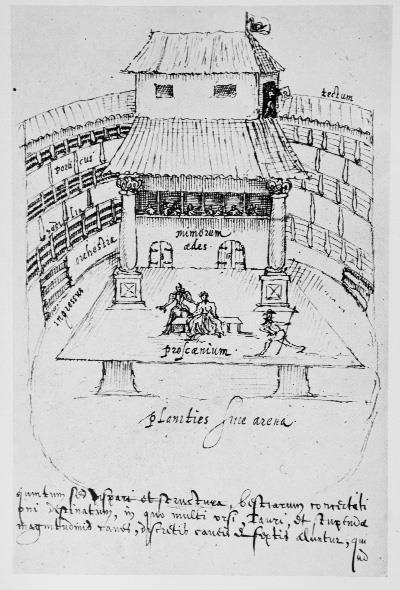 tectum
porticus
sedilia
orchestra
mimorum
ædes
ingressus
proscænium
planities sive arena
quintum sed dispari et structura, bestiarum concertati
oni destinatum, in quo multi ursi, Tauri, et stupendæ
magnitudinis canes, discretis caueis & septis aluntur, qui
ad